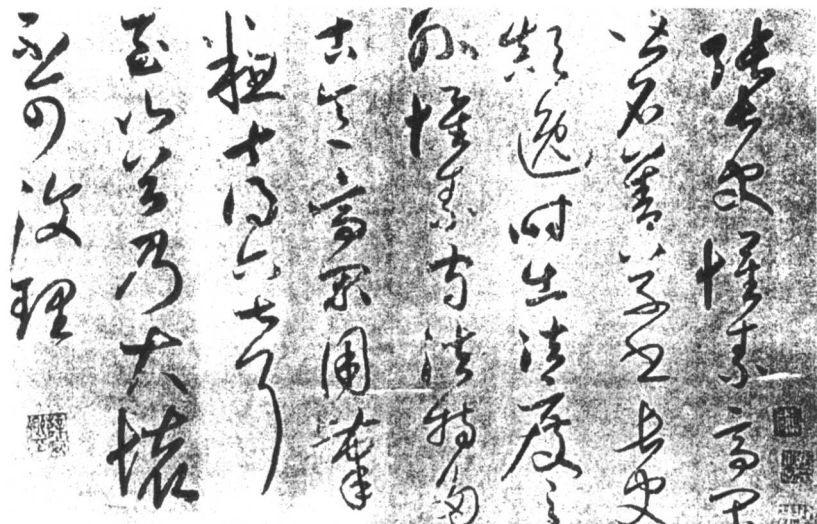 張長史懷素高閒
皆名善草書長史
顛逸時出法度之
外懷素守法特多
古意高閒用筆
粗十得六七耳
至山谷乃大壞
不可復理